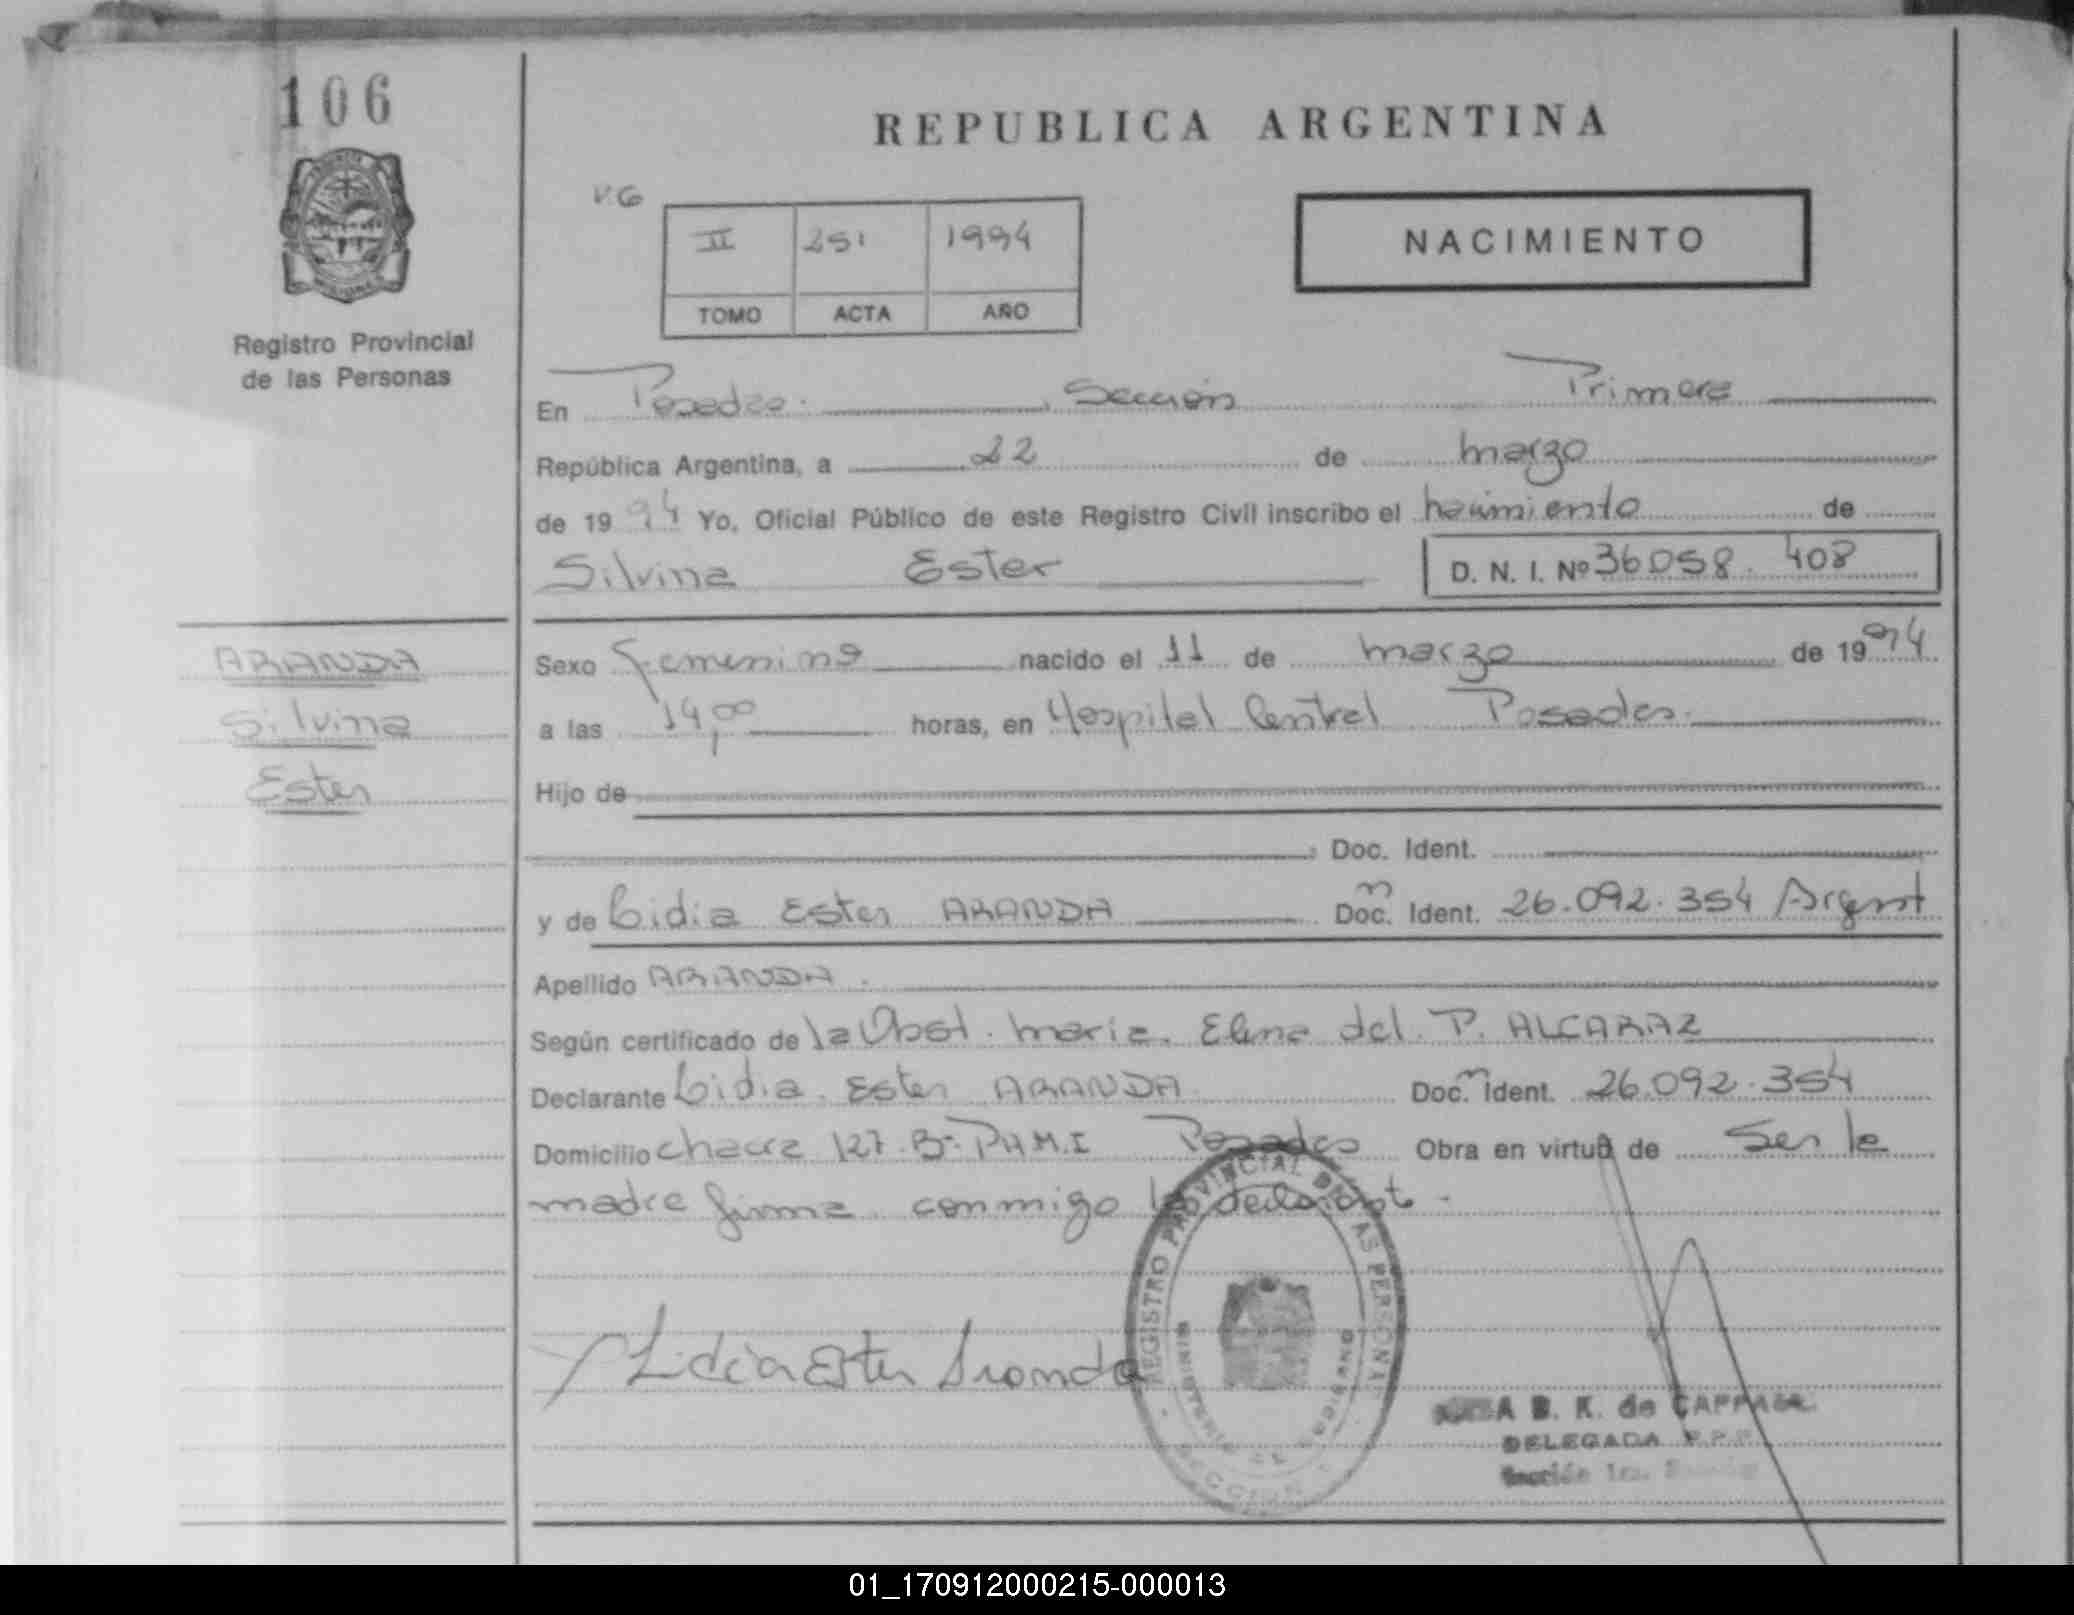 106
REPUBLICA ARGENTINA
V.G
II 251 1994
TOMO ACTA AÑO
NACIMIENTO
Registro Provincial
de las Personas
En Posadas. , Sección Primera
República Argentina, a 22 de marzo
de 1994 Yo, Oficial Público de este Registro Civil inscribo el nacimiento de
Silvina Ester D. N. I. Nº 36058.408
ARANDA
Silvina
Ester
Sexo femenino nacido el 11 de marzo de 1994
a las 14,00 horas, en Hospital Central Posadas.
Hijo de
Doc. Ident.
y de Lidia Ester ARANDA Doc. Ident. 26.092.354 Argent
Apellido ARANDA.
Según certificado de la Obst. Maria Elena del P. ALCARAZ
Declarante Lidia Ester ARANDA Doc. Ident. 26.092.354
Domicilio chacra 127.Bº PAM.I Posadas Obra en virtud de Ser la
madre firma conmigo la declarant.
Lidia Ester Aranda
REGISTRO PROVINCIAL DE LAS PERSONAS
MINISTERIO DE GOBIERNO
SECCION
A B. K. de
DELEGADA R.P.P.
Sección 1ra.
01_170912000215-000013